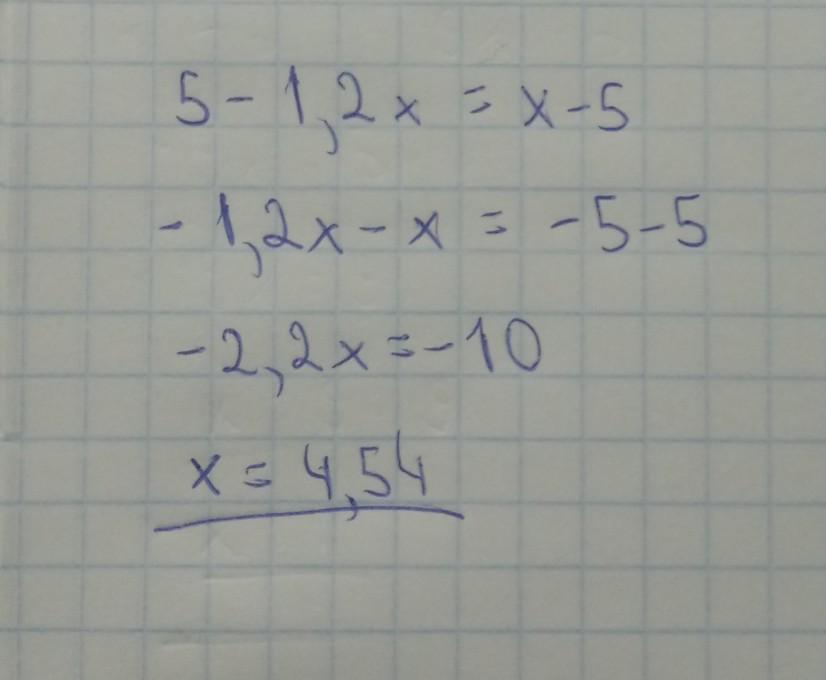 5 - 1,2x = x - 5
- 1,2x - x = - 5 - 5
- 2,2x = - 10
x = 4,54